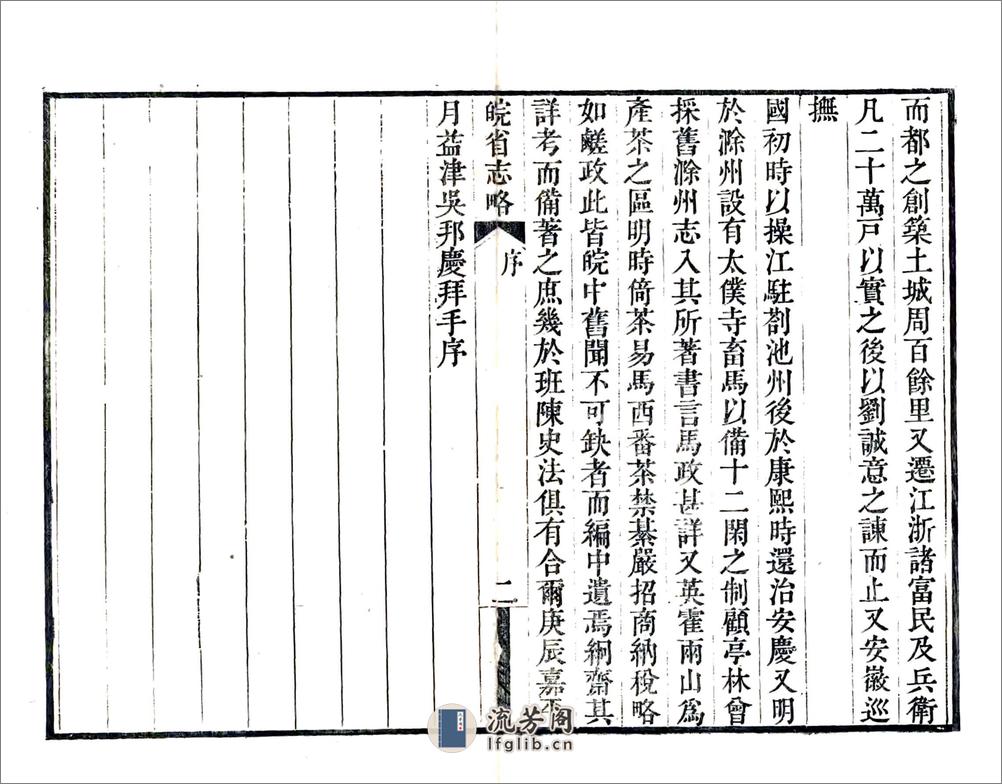 而都之創築土城周百餘里又遷江浙諸富民及兵衛
凡二十萬戸以實之後以劉誠意之諫而止又安徽巡
撫
國初時以操江駐劄池州後於康熙時還治安慶又明
於滁州設有太僕寺畜馬以備十二閑之制顧亭林曾
採舊滁州志入其所著書言馬政甚詳又英霍兩山爲
產茶之區明時倚茶易馬西番茶禁綦嚴招商納稅略
如鹺政此皆皖中舊聞不可缺者而編中遺焉絅齋其
詳考而備著之庶幾於班陳史法俱有合爾庚辰嘉平
皖省志略
序
二
月益津吳邦慶拜手序
流芳阁
lfglib.cn